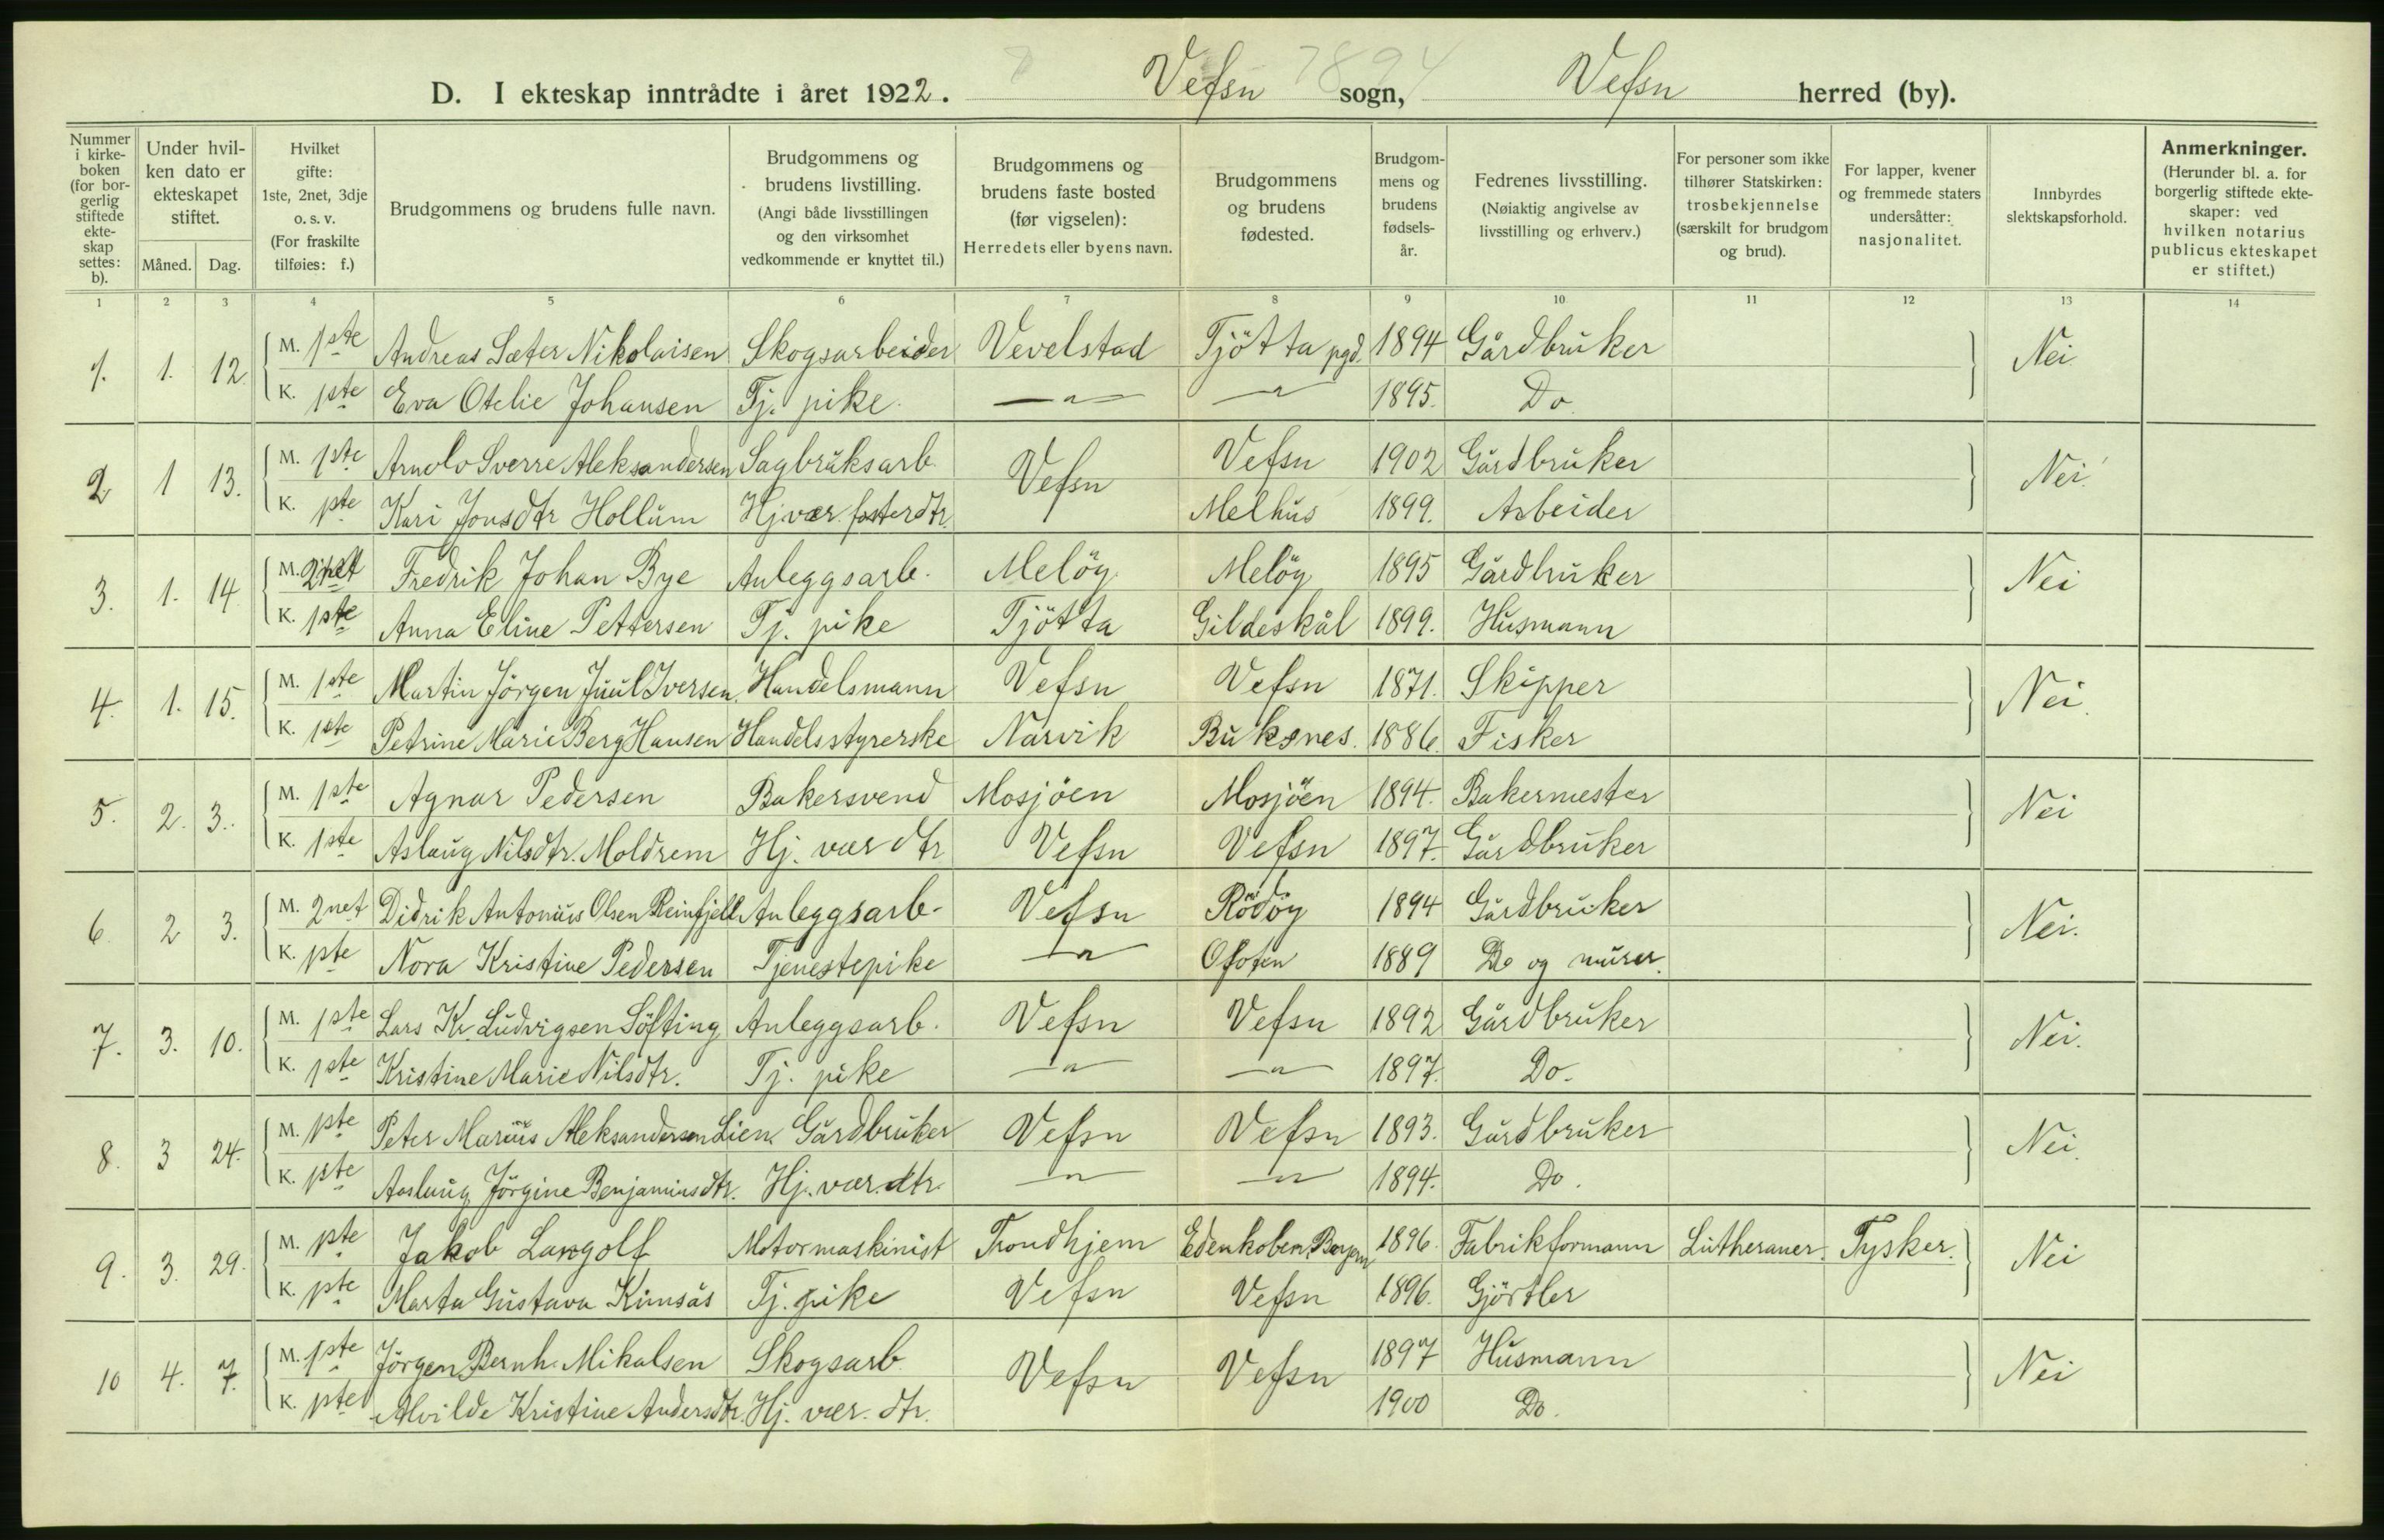 D. I ekteskap inntrådte i året 1922. Vefsn sogn, Vefsn herred (by).
7894
Nummer i kirkeboken (for borgerlig stiftede ekteskap settes: b).
Under hvilken dato er ekteskapet stiftet.
Måned. Dag.
Hvilket gifte: 1ste, 2net, 3dje o. s. v. (For fraskilte tilføies: f.)
Brudgommens og brudens fulle navn.
Brudgommens og brudens livstilling. (Angi både livsstillingen og den virksomhet vedkommende er knyttet til.)
Brudgommens og brudens faste bosted (før vigselen): Herredets eller byens navn.
Brudgommens og brudens fødested.
Brudgommens og brudens fødselsår.
Fedrenes livsstilling. (Nøiaktig angivelse av livsstilling og erhverv.)
For personer som ikke tilhører Statskirken: trosbekjennelse (særskilt for brudgom og brud).
For lapper, kvener og fremmede staters undersåtter: nasjonalitet.
Innbyrdes slektskapsforhold.
Anmerkninger. (Herunder bl. a. for borgerlig stiftede ekteskaper: ved hvilken notarius publicus ekteskapet er stiftet.)
1 2 3 4 5 6 7 8 9 10 11 12 13 14
1. 1. 12. M. 1ste Andreas Sæter Nikolaisen Skogsarbeider Vevelstad Tjötta pgd. 1894 Gårdbruker Nei
K. 1ste Eva Otelie Johansen Tj. pike — " — — " — 1895. Do
2 1 13. M. 1ste Arnolv Sverre Aleksandersen Sagbruksarb. Vefsn Vefsn 1902 Gårdbruker Nei
K. 1ste Kari Jonsdtr Hollum Hjvær. fosterdtr. Melhus 1899. Arbeider
3. 1. 14 M. 2net Fredrik Johan Bye Anleggsarb. Melöy Melöy 1895 Gårdbruker Nei
K. 1ste Anna Eline Pettersen Tj. pike Tjötta Gildeskål 1899. Husmann
4. 1. 15. M. 1ste Martin Jörgen Juul Iversen Handelsmann Vefsn Vefsn 1871. Skipper Nei.
K. 1ste Petrine Marie Berg Hansen Handelsstyrerske Narvik Buksnes. 1886. Fisker
5. 2. 3. M. 1ste Agnar Pedersen Bakersvend Mosjöen Mosjöen 1894. Bakermester Nei
K. 1ste Aslaug Nilsdtr. Moldrem Hj. vær dtr Vefsn Vefsn 1897. Gårdbruker
6. 2 3. M. 2net Didrik Antonius Olsen Reinfjell Anleggsarb. Vefsn Rödöy 1894 Gårdbruker Nei.
K. 1ste Nora Kristine Pedersen Tjenestepike — " — Ofoten 1889 Do og murer.
7. 3. 10. M. 1ste Lars Kr. Ludvigsen Söfting Anleggsarb. Vefsn Vefsn 1892 Gårdbruker Nei.
K. 1ste Kristine Marie Nilsdtr. Tj. pike — " — — " — 1897. Do.
8. 3 24. M. 1ste Peter Marius Aleksandersen Lien Gårdbruker Vefsn Vefsn 1893. Gårdbruker Nei.
K. 1ste Aaslaug Jörgine Benjaminsdtr. Hj. vær. dtr. — " — — " — 1894. Do.
9. 3. 29. M. 1ste Jakob Langolf Motormaskinist Trondhjem Edenkoben, Bayern 1896. Fabrikformann Lutheraner. Tysker. Nei
K. 1ste Marta Gustava Kimsås Tj. pike Vefsn Vefsn 1896. Gjörtler
10 4. 7. M. 1ste Jörgen Bernh. Mikalsen Skogsarb. Vefsn Vefsn 1897 Husmann Nei
K. 1ste Alvilde Kristine Andersdtr. Hj. vær. dtr. 1900 Do.